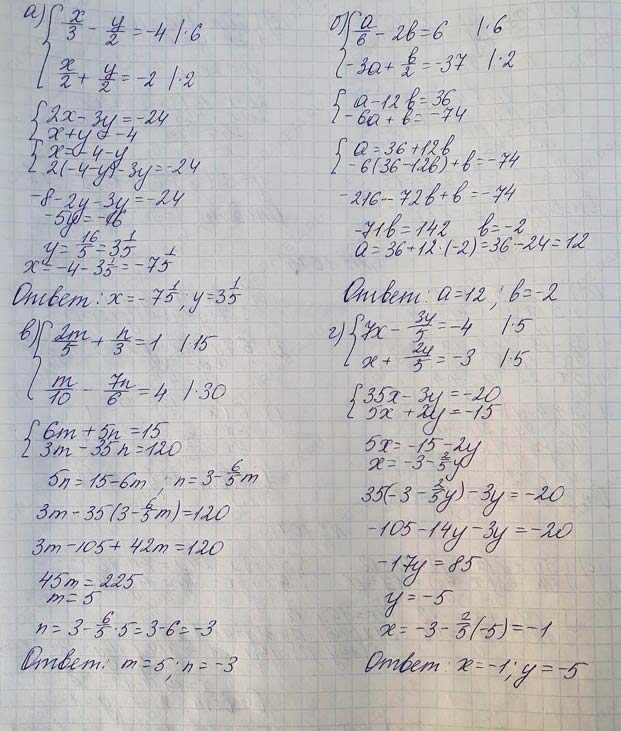 а) { x/3 - y/2 = -4 | ·6
x/2 + y/2 = -2 | ·2
{ 2x - 3y = -24
x + y = -4
{ x = -4 - y
2(-4-y) - 3y = -24
-8 - 2y - 3y = -24
-5y = -16
y = 16/5 = 3 1/5
x = -4 - 3 1/5 = -7 1/5
Ответ: x = -7 1/5; y = 3 1/5
б) { a/6 - 2b = 6 | ·6
-3a + b/2 = -37 | ·2
{ a - 12b = 36
-6a + b = -74
{ a = 36 + 12b
-6(36-12b) + b = -74
-216 - 72b + b = -74
-71b = 142 b = -2
a = 36 + 12·(-2) = 36 - 24 = 12
Ответ: a = 12; b = -2
в) { 2m/5 + n/3 = 1 | ·15
m/10 - 7n/6 = 4 | ·30
{ 6m + 5n = 15
3m - 35n = 120
5n = 15 - 6m; n = 3 - 6/5 m
3m - 35(3 - 6/5 m) = 120
3m - 105 + 42m = 120
45m = 225
m = 5
n = 3 - 6/5 · 5 = 3 - 6 = -3
Ответ: m = 5; n = -3
г) { 7x - 3y/5 = -4 | ·5
x + 2y/5 = -3 | ·5
{ 35x - 3y = -20
5x + 2y = -15
5x = -15 - 2y
x = -3 - 2/5 y
35(-3 - 2/5 y) - 3y = -20
-105 - 14y - 3y = -20
-17y = 85
y = -5
x = -3 - 2/5 (-5) = -1
Ответ: x = -1; y = -5